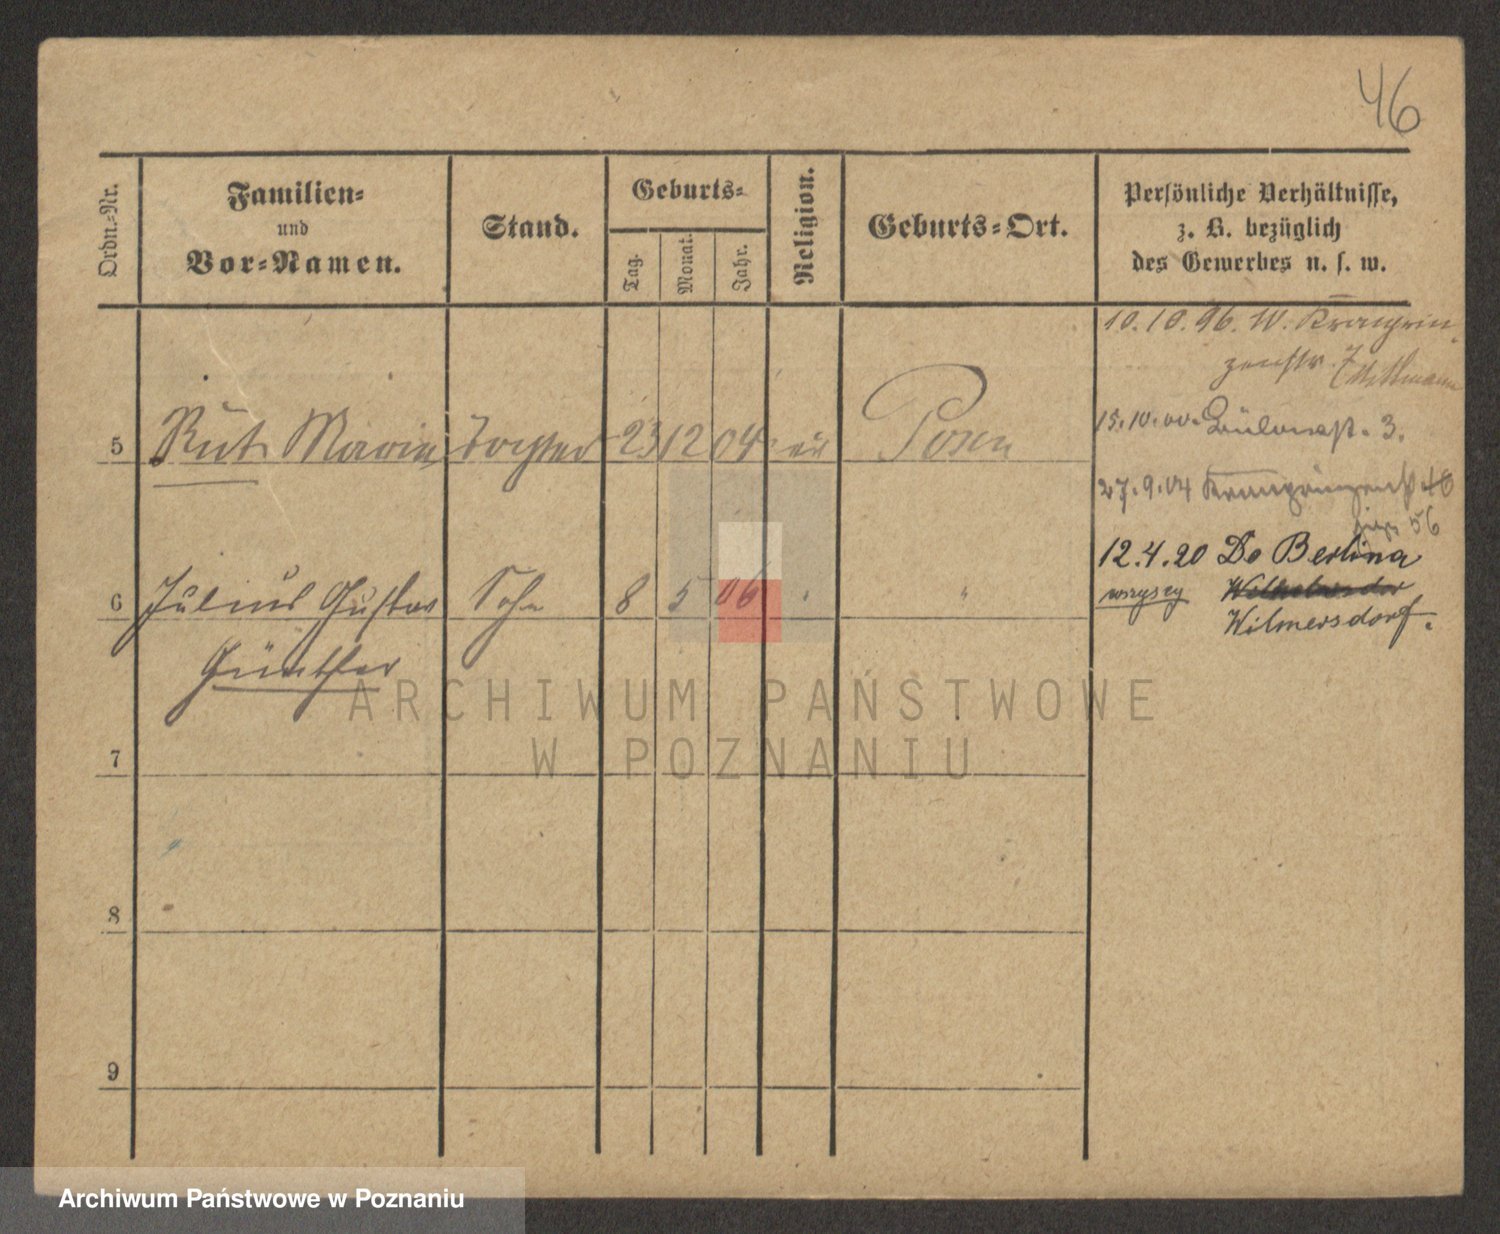 46
Ordn.-Nr.
Familien-
und
Vor-Namen.
Stand.
Geburts-
Tag.
Monat.
Jahr.
Religion.
Geburts-Ort.
Persönliche Verhältnisse,
z. B. bezüglich
des Gewerbes u. s. w.
10.10.96. W. Kronprin
zenstr. 7
15.10.00. Bülowst. 3.
5 Rut Marie Tochter 23 12 04 ev Posen
27.9.04 Kronprinzenst
56
12.4.20 Do Berlina
6 Julius Gustav Sohn 8 5 06 " "
wszyscy
Wilmersdorf.
Günther
7
8
9
ARCHIWUM PAŃSTWOWE
W POZNANIU
Archiwum Państwowe w Poznaniu